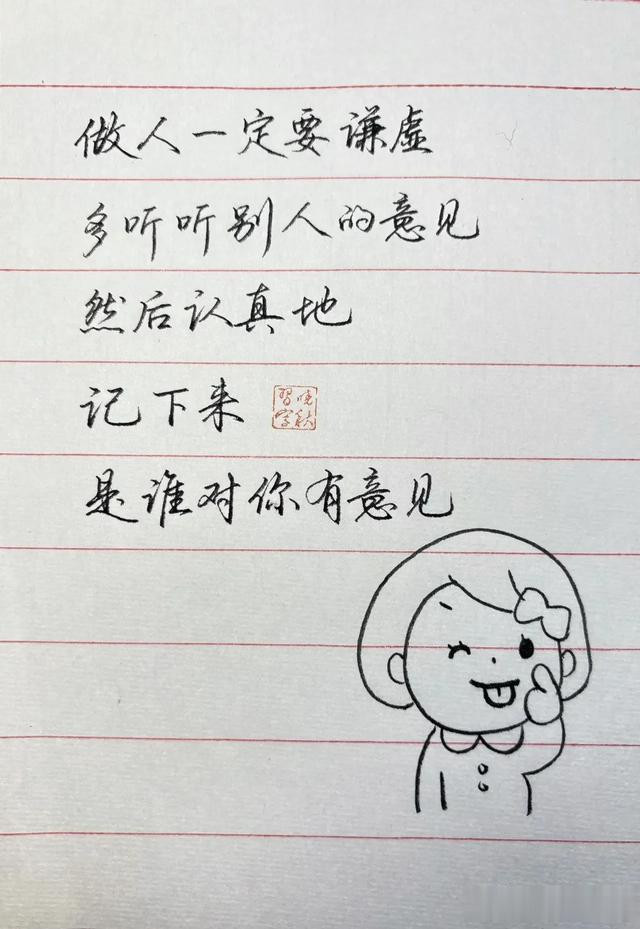 做人一定要谦虚
多听听别人的意见
然后认真地
记下来
晓秋习字
是谁对你有意见